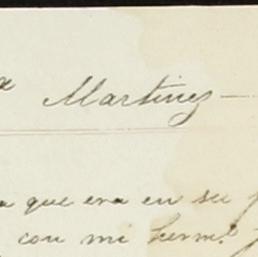 Martinez
que era en su
con mi herm.º